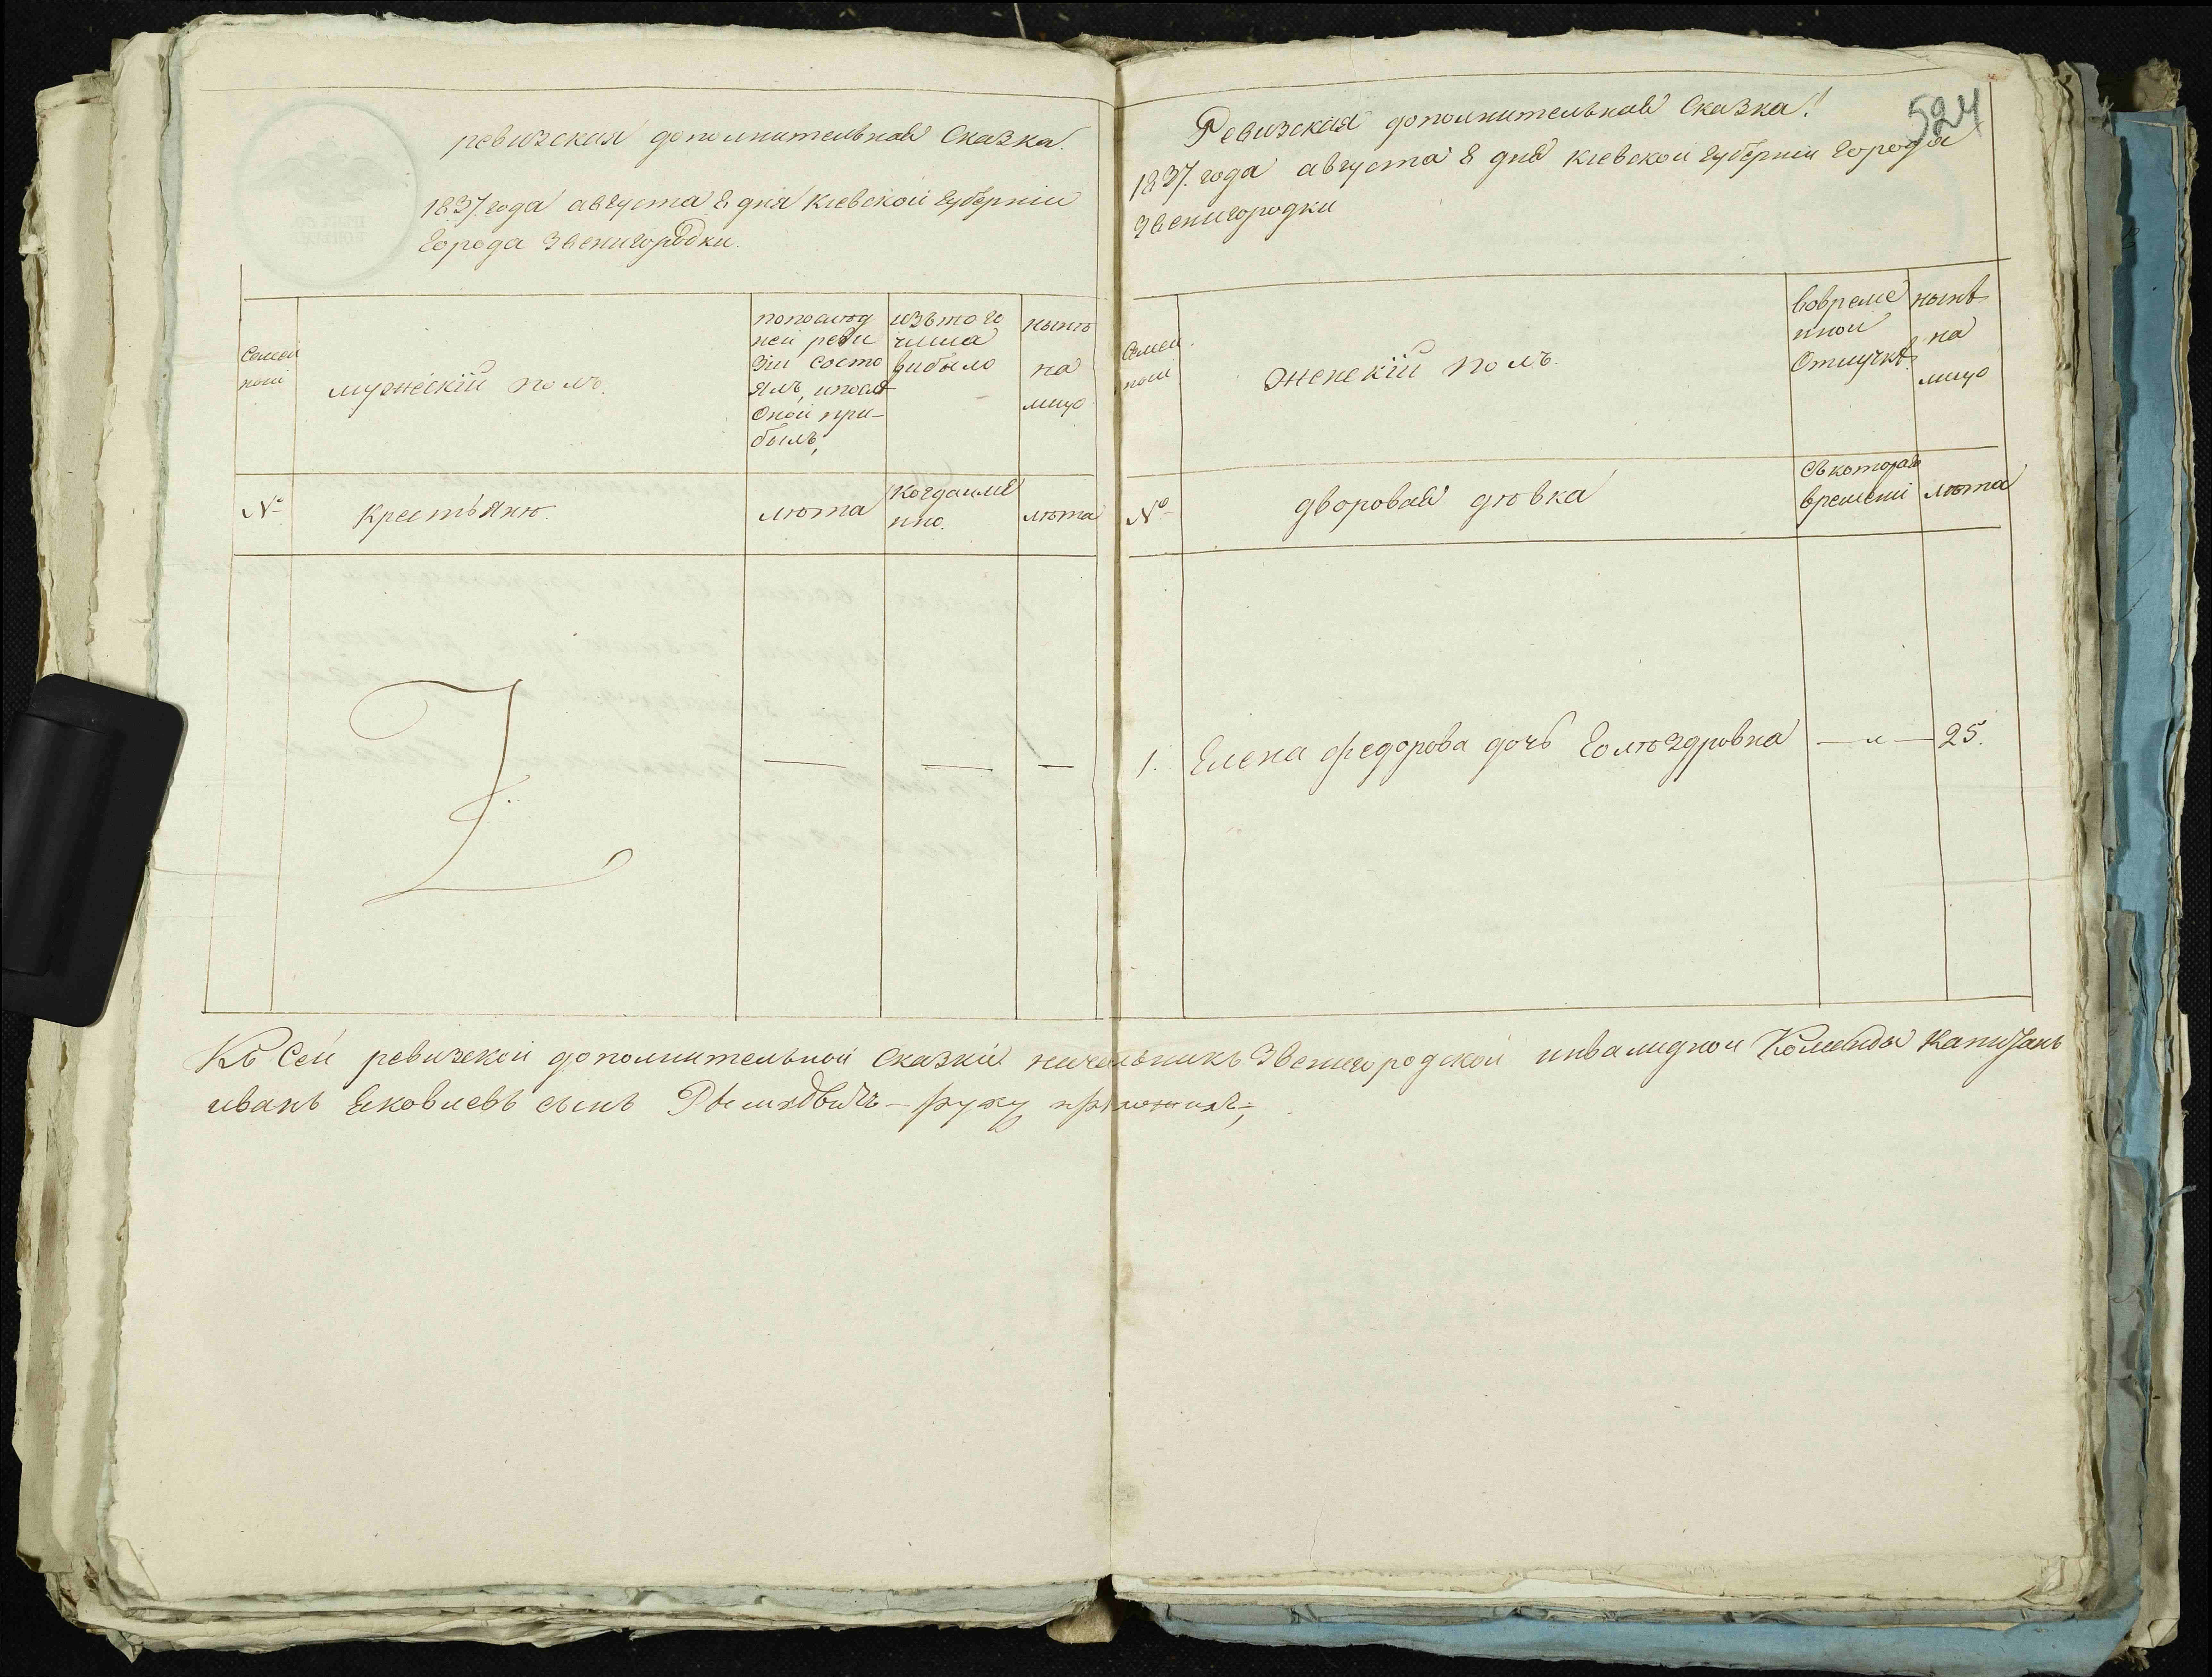 ревизская дополнительная Сказка.
1837. года августа 8 дня киевской губернии
города Звенигородки.
Семей
ной
мужескій полъ.
попослѣд
ней реви
зіи состо
ялъ, ипослѣ
Оной при-
былъ,
изътого
числа
выбыло
нынѣ
на
лицо
№
крестьянѣ.
лѣта
Когдаиме
нно.
лѣта
Ревизская дополнительная Сказка!
524
1837. года августа 8 дня киевской губерніи города
Звенигородки
Семей
ной
женскій полъ.
вовреме
нной
Отлучкѣ
нынѣ
на
лицо
№
дворовая дѣвка
съкотораго
времени
лѣта
1. Елена федорова дочь — „ — 25.
Къ Сей ревизской дополнительной Сказки начальникъ Звенигородской инвалидной Команды Капитанъ
иванъ Яковлевъ сынъ руку приложилъ,